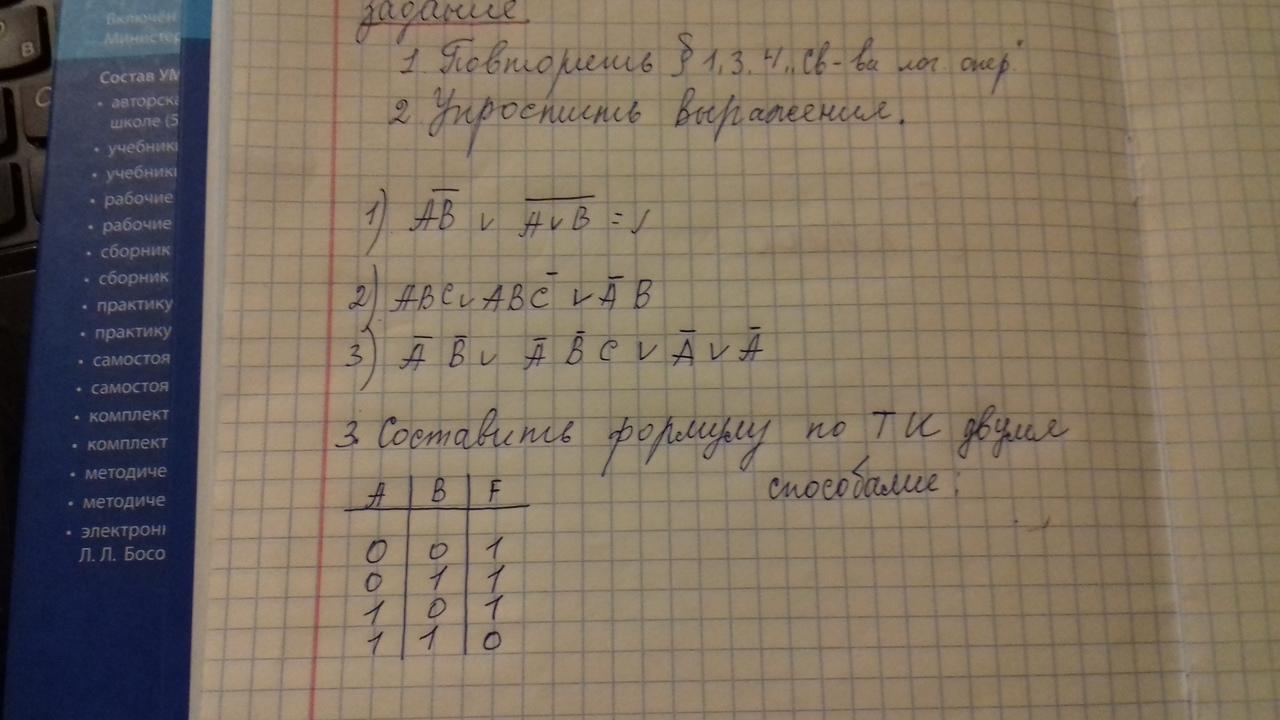 Включён
Министер
Состав УМ
• авторска
школе (5
• учебники
• учебники
• рабочие
• рабочие
• сборник
• сборник
• практику
• практику
• самостоя
• самостоя
• комплект
• комплект
• методиче
• методиче
• электронн
Л. Л. Босо
задание.
1. Повторить § 1, 3, 4, св-ва лог. опер.
2. Упростить выражения.
1) AB̅ v A̅ ̅v̅ ̅B̅ =
2) ABC v ABC̅ v A̅ B
3) A̅ B̅ v A̅ B̅ C v A̅ v A̅
3. Составить формулу по ТИ двумя
способами:
A B F
0 0 1
0 1 1
1 0 1
1 1 0